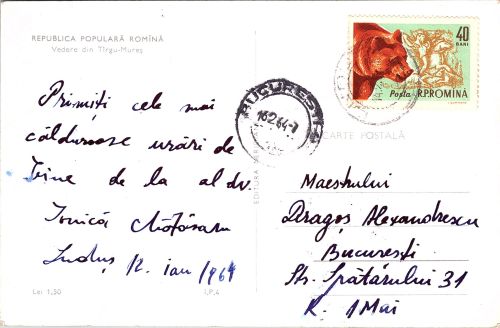 REPUBLICA POPULARĂ ROMÎNĂ
Vedere din Tîrgu-Mureș
Primiți cele mai
călduroase urări de
bine de la al dv.
Ionică
Luduș 12. ian/1964
Lei 1,50
I.P.4
EDITURA
CARTE POSTALĂ
BUCUREȘTI
16.2.64-7
40
BANI
Posta R.P.ROMINA
Maestrului
Dragoș Alexandrescu
București
Str. Spătarului 31
R. 1 Mai